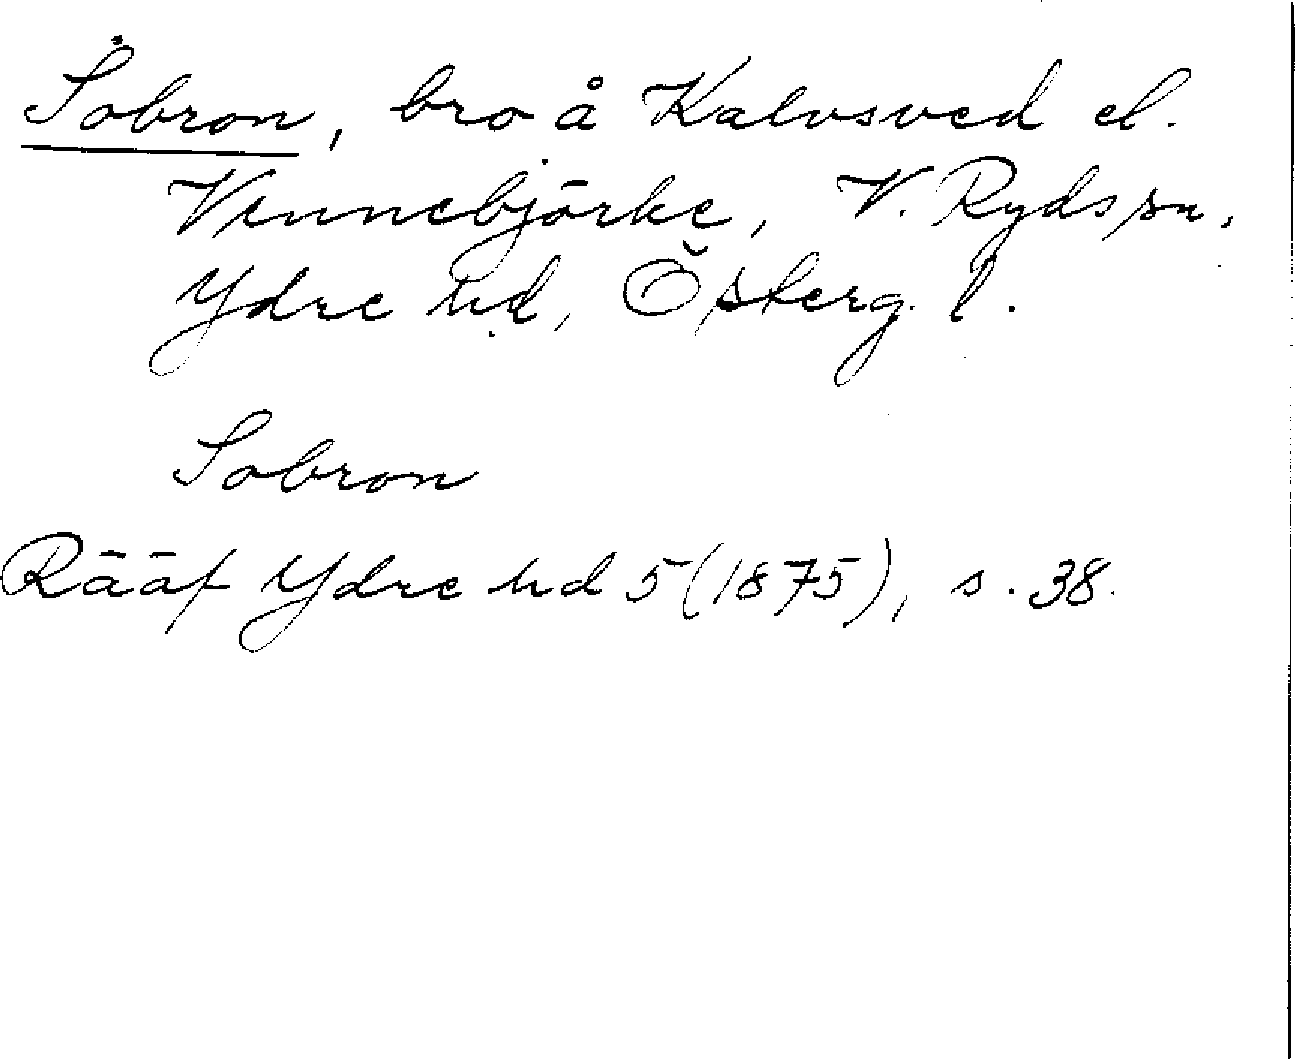 *Sobron, bro å Kalvsved el.
Vennebjörke, V. Ryds sn,
Ydre hd, Österg. l.
Sobron
Rääf Ydre hd 5 (1875), s. 38.